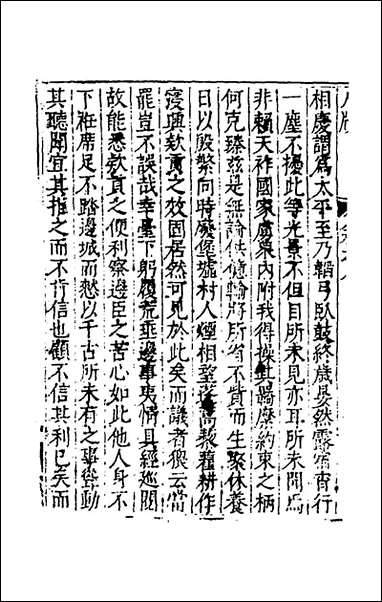 相慶謂爲太平至乃韜弓臥鼓終歲晏然露宿宵行
一塵不擾此等光景不但目所未見亦耳所未聞焉
非賴天祚國家虜巢內附我得操其羈縻約束之柄
何克臻茲是無論供億輸將所省不貲而生聚休養
日以殷繁向時廢堡墟村人煙相望蒿藜藿耕作
寖興款貢之效固居然可見於此矣而議者猥云當
罷豈不誤哉幸臺下躬履荒垂邊事夷情具經巡閱
故能悉款貢之便利察邊臣之苦心如此他人身不
下袵席足不踏邊城而愁以千古所未有之事聳動
其聽聞宜其推之而不肯信也顧不信其利已矣而